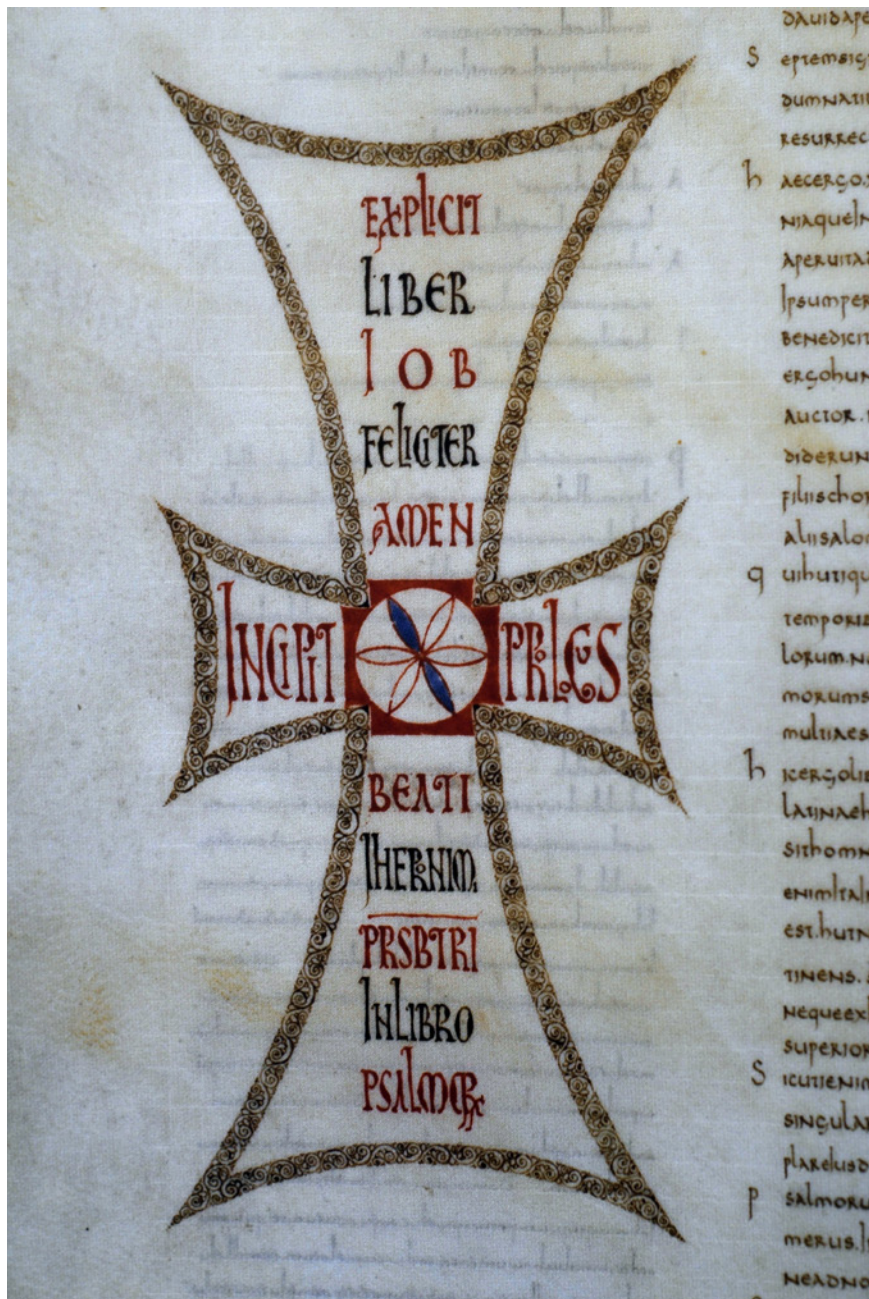 EXPLICIT
LIBER
IOB
FELICITER
AMEN
INCIPIT PROLOGUS
BEATI
IHERONIM
PRSBTRI
IN LIBRO
PSALMORUM
DAUID APE
S EPTEM SIG
DUM NATI
RESURREC
H AEC ERGO
NIAQUE IN
APERUIT A
IPSUM PER
BENEDICIT
ERGO HUN
AUCTOR.
DIDERUN
FILII SCHOR
ALII SALO
Q UI HUTIQU
TEMPORIB
LORUM. N
MORUM S
MULTI AES
H IC ERGO LIB
LATINAE
SIT HOMN
ENIM ITAL
EST. HUTN
TINENS.
NEQUE EX
SUPERIOR
S ICUTI ENIM
SINGULA
PLARE IUS
P SALMORU
MERUS. I
NE ADNO